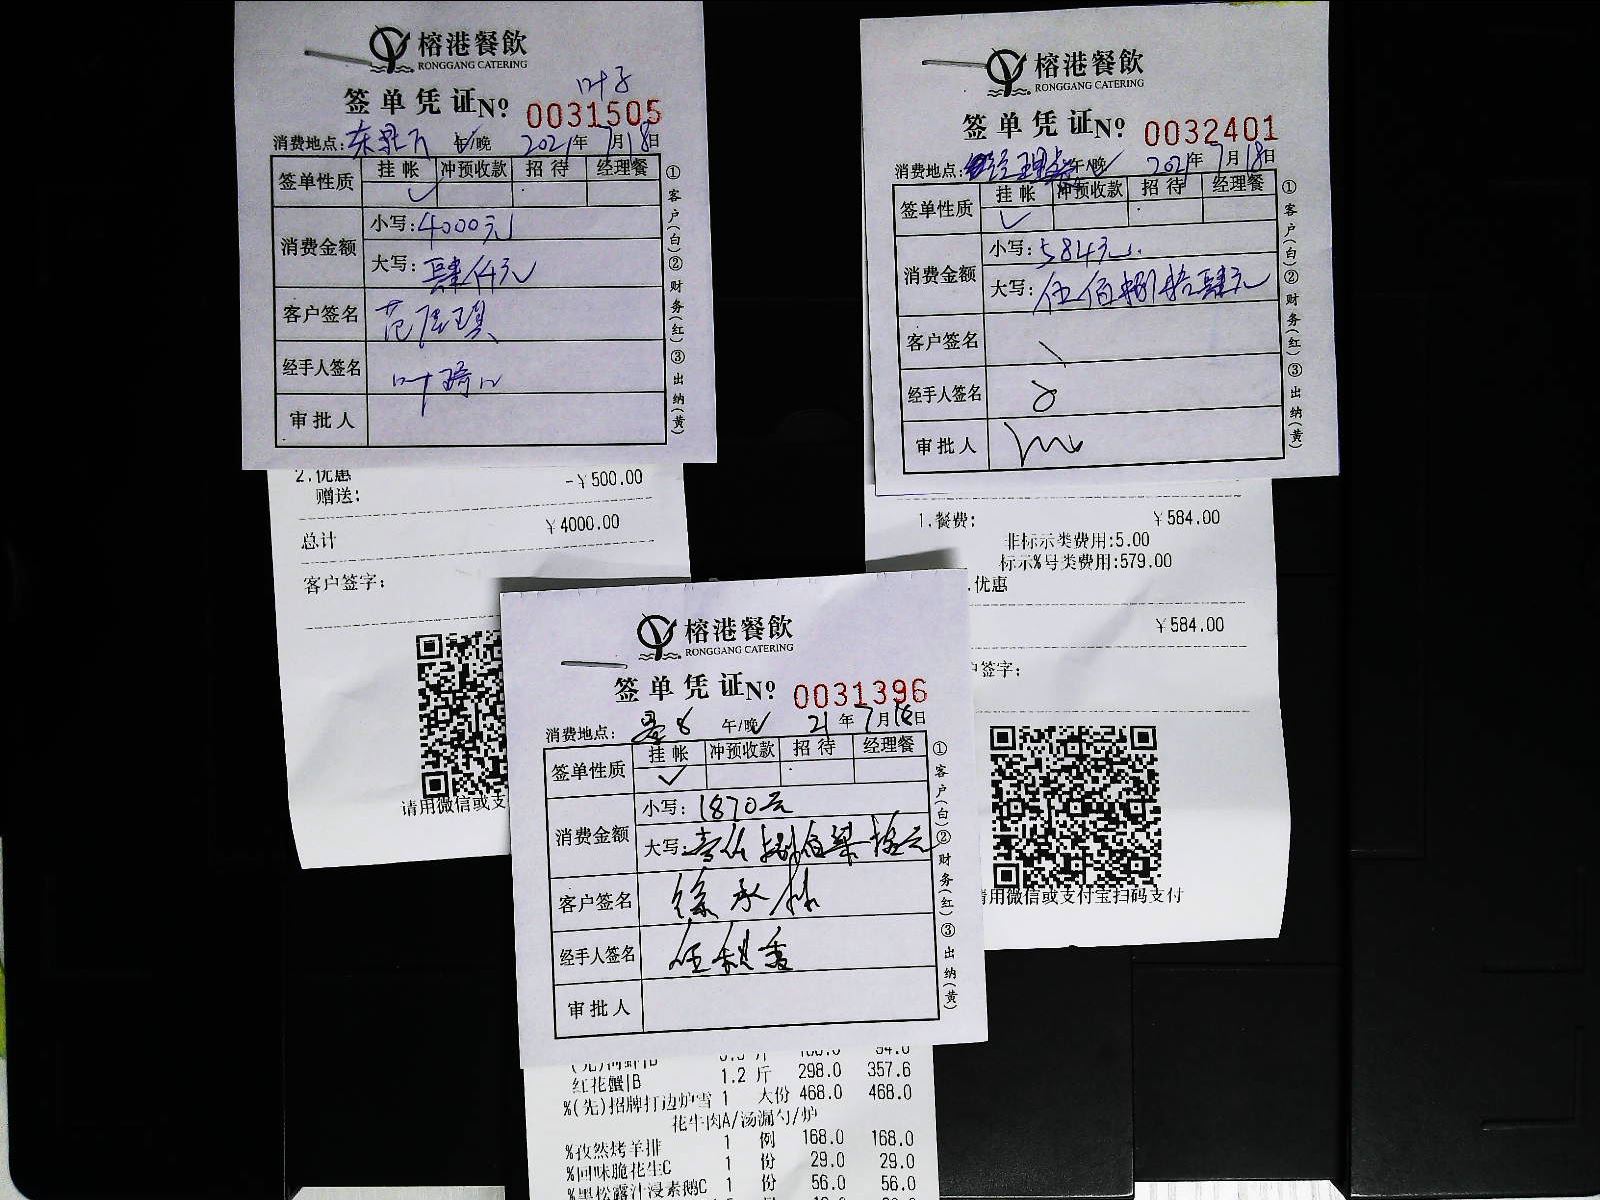 榕港餐飲
RONGGANG CATERING
叶子
签单凭证№ 0031505
消费地点: 午/晚 2021年7月18日
签单性质 挂帐 冲预收款 招待 经理餐
消费金额 小写:4000元
大写:肆仟元
客户签名
经手人签名 叶琦
审批人
①客户(白)②财务(红)③出纳(黄)
2.优惠
赠送: -¥500.00
总计 ¥4000.00
客户签字:
请用微信或支
榕港餐飲
RONGGANG CATERING
签单凭证№ 0032401
消费地点: 经理 午/晚 2021年7月18日
签单性质 挂帐 冲预收款 招待 经理餐
消费金额 小写:584元
大写:伍佰捌拾肆元
客户签名
经手人签名
审批人
①客户(白)②财务(红)③出纳(黄)
1.餐费: ¥584.00
非标示类费用:5.00
标示%号类费用:579.00
.优惠
¥584.00
户签字:
请用微信或支付宝扫码支付
榕港餐飲
RONGGANG CATERING
签单凭证№ 0031396
消费地点: 午/晚 21年7月 日
签单性质 挂帐 冲预收款 招待 经理餐
消费金额 小写:1870元
大写:壹仟捌佰柒拾元
客户签名 徐承林
经手人签名 任秋香
审批人
①客户(白)②财务(红)③出纳(黄)
红花蟹|B 1.2 斤 298.0 357.6
%(先)招牌打边炉雪 1 大份 468.0 468.0
花牛肉A/汤漏勺/炉
%孜然烤羊排 1 例 168.0 168.0
%回味脆花生C 1 份 29.0 29.0
%黑松露汁浸素鹅C 1 份 56.0 56.0